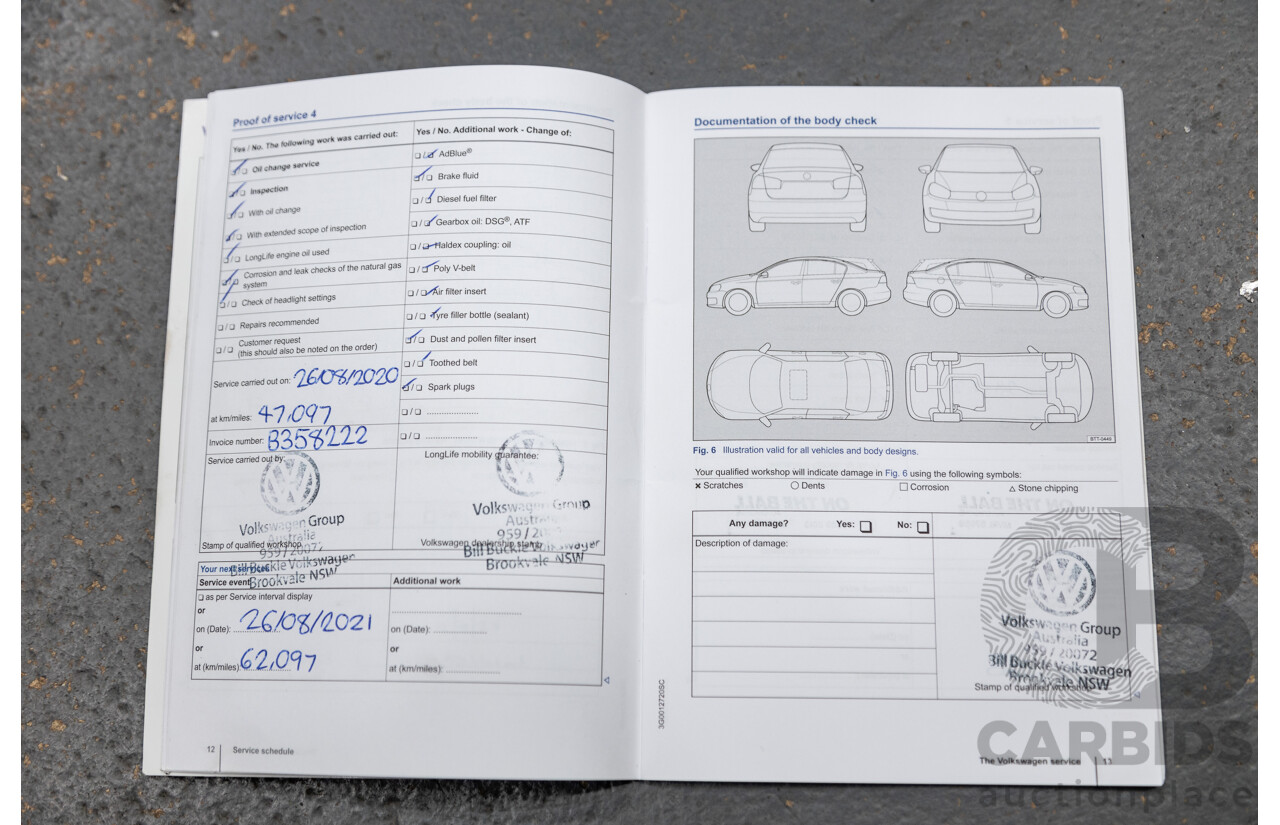 Proof of service 4
Yes / No. The following work was carried out:
Oil change service
Inspection
With oil change
With extended scope of inspection
LongLife engine oil used
Corrosion and leak checks of the natural gas
system
Check of headlight settings
Repairs recommended
Customer request
(this should also be noted on the order)
Service carried out on: 26/08/2020
at km/miles: 47,097
Invoice number: B358222
Service carried out by:
Volkswagen Group
Australia
959/20072
Bill Buckle Volkswagen
Brookvale NSW
Stamp of qualified workshop
Yes / No. Additional work - Change of:
AdBlue®
Brake fluid
Diesel fuel filter
Gearbox oil: DSG®, ATF
Haldex coupling: oil
Poly V-belt
Air filter insert
Tyre filler bottle (sealant)
Dust and pollen filter insert
Toothed belt
Spark plugs
LongLife mobility guarantee:
Volkswagen Group
Australia
959 / 20072
Bill Buckle Volkswagen
Brookvale NSW
Volkswagen dealership stamp
Your next services
Service event
Additional work
as per Service interval display
or
on (Date): 26/08/2021
or
at (km/miles): 62,097
on (Date):
or
at (km/miles):
12 Service schedule
Documentation of the body check
BTT-0449
Fig. 6 Illustration valid for all vehicles and body designs.
Your qualified workshop will indicate damage in Fig. 6 using the following symbols:
× Scratches ○ Dents □ Corrosion △ Stone chipping
Any damage? Yes: No:
Description of damage:
Volkswagen Group
Australia
959 / 20072
Bill Buckle Volkswagen
Brookvale NSW
Stamp of qualified workshop
3G0012720SC
The Volkswagen service 13
CARBIDS
auctionplace